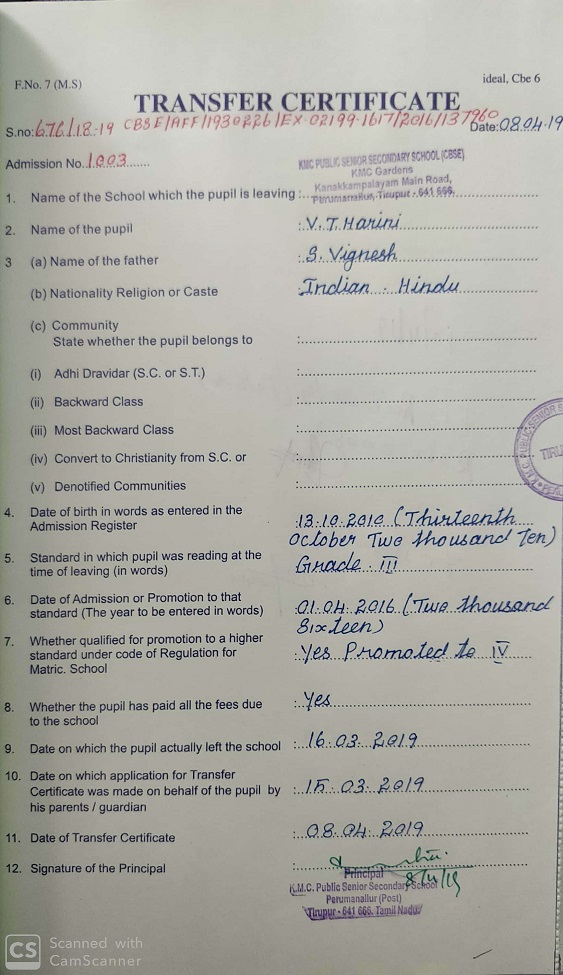 F.No. 7 (M.S)
ideal, Cbe 6
TRANSFER CERTIFICATE
S.no: 676/18-19 CBSE/AFF/1930226/EX-02199-1617/2016/137960 Date: 08.04.19
Admission No. 1003
KMC PUBLIC SENIOR SECONDARY SCHOOL (CBSE)
KMC Gardens
Kanakkampalayam Main Road,
Perumanallur, Tiruput - 641 666.
1. Name of the School which the pupil is leaving :
2. Name of the pupil : V.T.Harini
3 (a) Name of the father : S. Vignesh
(b) Nationality Religion or Caste : Indian - Hindu
(c) Community
State whether the pupil belongs to :
(i) Adhi Dravidar (S.C. or S.T.) :
(ii) Backward Class :
(iii) Most Backward Class :
(iv) Convert to Christianity from S.C. or :
(v) Denotified Communities :
K.M.C. PUBLIC SENIOR S
TIRU
4. Date of birth in words as entered in the
Admission Register : 13.10.2010 (Thirteenth
October Two thousand Ten)
5. Standard in which pupil was reading at the
time of leaving (in words) Grade - III
6. Date of Admission or Promotion to that
standard (The year to be entered in words) : 01.04.2016 (Two thousand
Sixteen)
7. Whether qualified for promotion to a higher
standard under code of Regulation for
Matric. School : Yes Promoted to IV
8. Whether the pupil has paid all the fees due
to the school : Yes
9. Date on which the pupil actually left the school : 16.03.2019
10. Date on which application for Transfer
Certificate was made on behalf of the pupil by
his parents / guardian : 15.03.2019
11. Date of Transfer Certificate : 08.04.2019
12. Signature of the Principal :
8/4/19
Principal
K.M.C. Public Senior Secondary School
Perumanallur (Post)
Tirupur - 641 666. Tamil Nadu
CS Scanned with
CamScanner